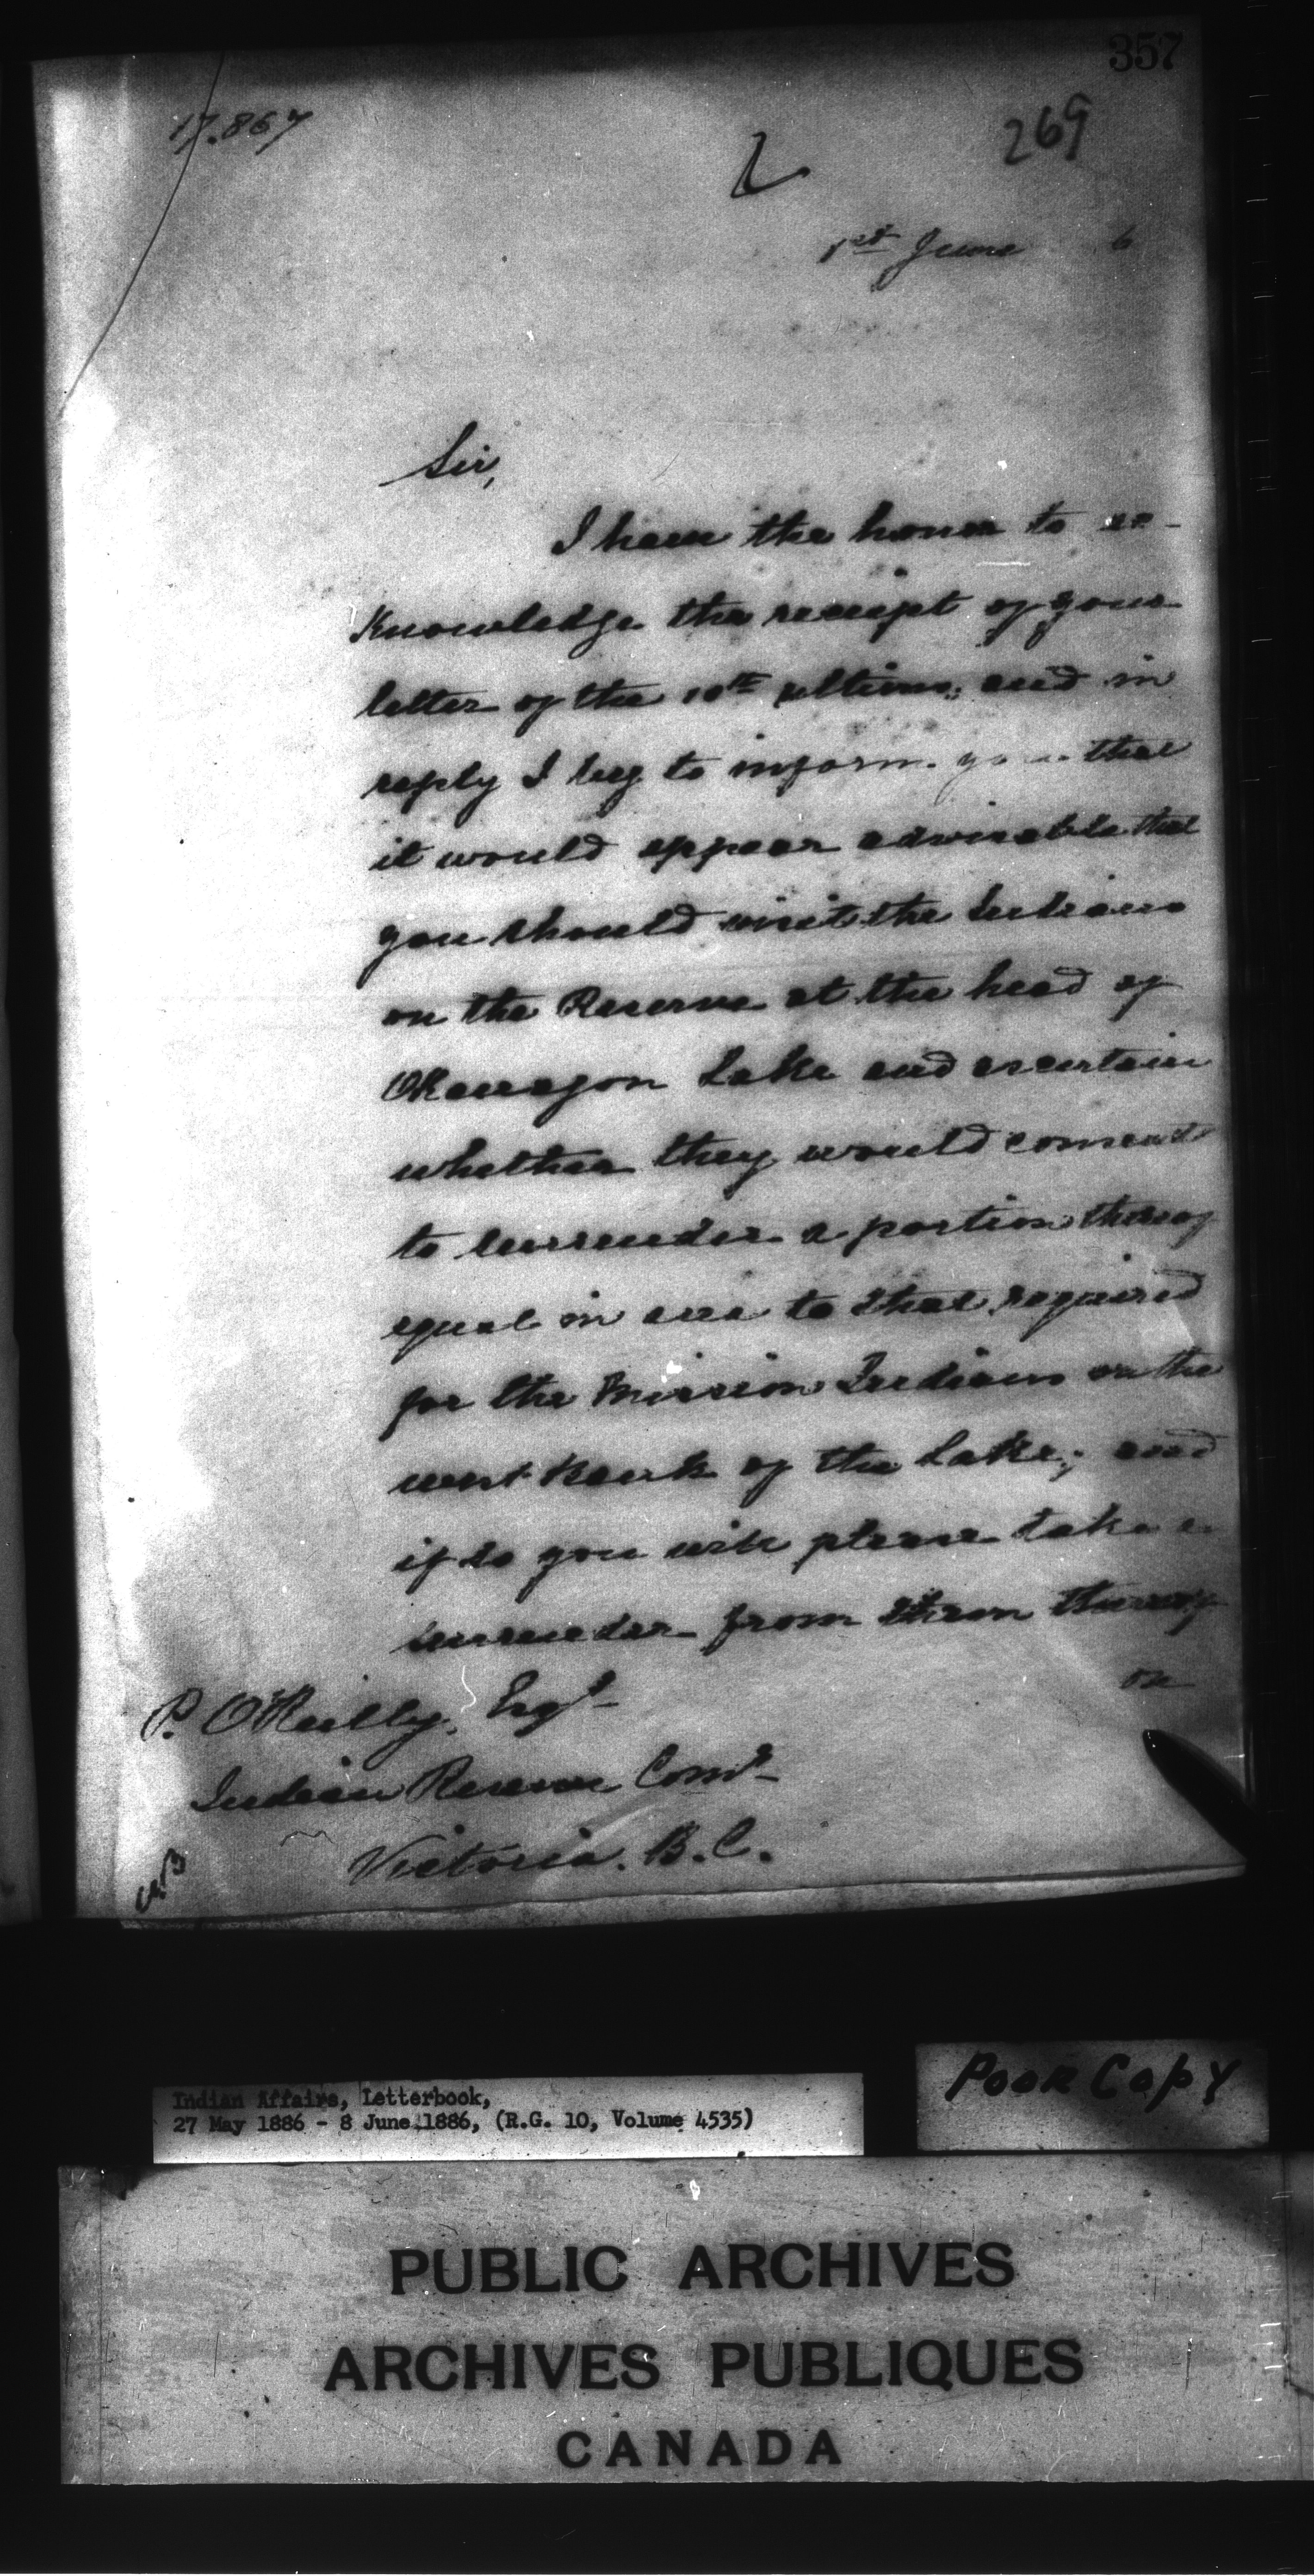 357
17.867
269
L
1st June 6
Sir,
I have the honor to ac-
knowledge the receipt of your
letter of the 10th ultimo, and in
reply I beg to inform you that
it would appear advisable that
you should visit the Indians
on the Reserve at the head of
Okanagon Lake and ascertain
whether they would consent
to surrender a portion thereof
equal in area to that required
for the Mission Indians on the
west bank of the Lake; and
if so you will please take a
surrender from them thereof
on
P. O'Reilly, Esqr
Indian Reserve Comr
Victoria. B.C.
Indian Affairs, Letterbook,
27 May 1886 - 8 June 1886, (R.G. 10, Volume 4535)
Poor Copy
PUBLIC ARCHIVES
ARCHIVES PUBLIQUES
CANADA